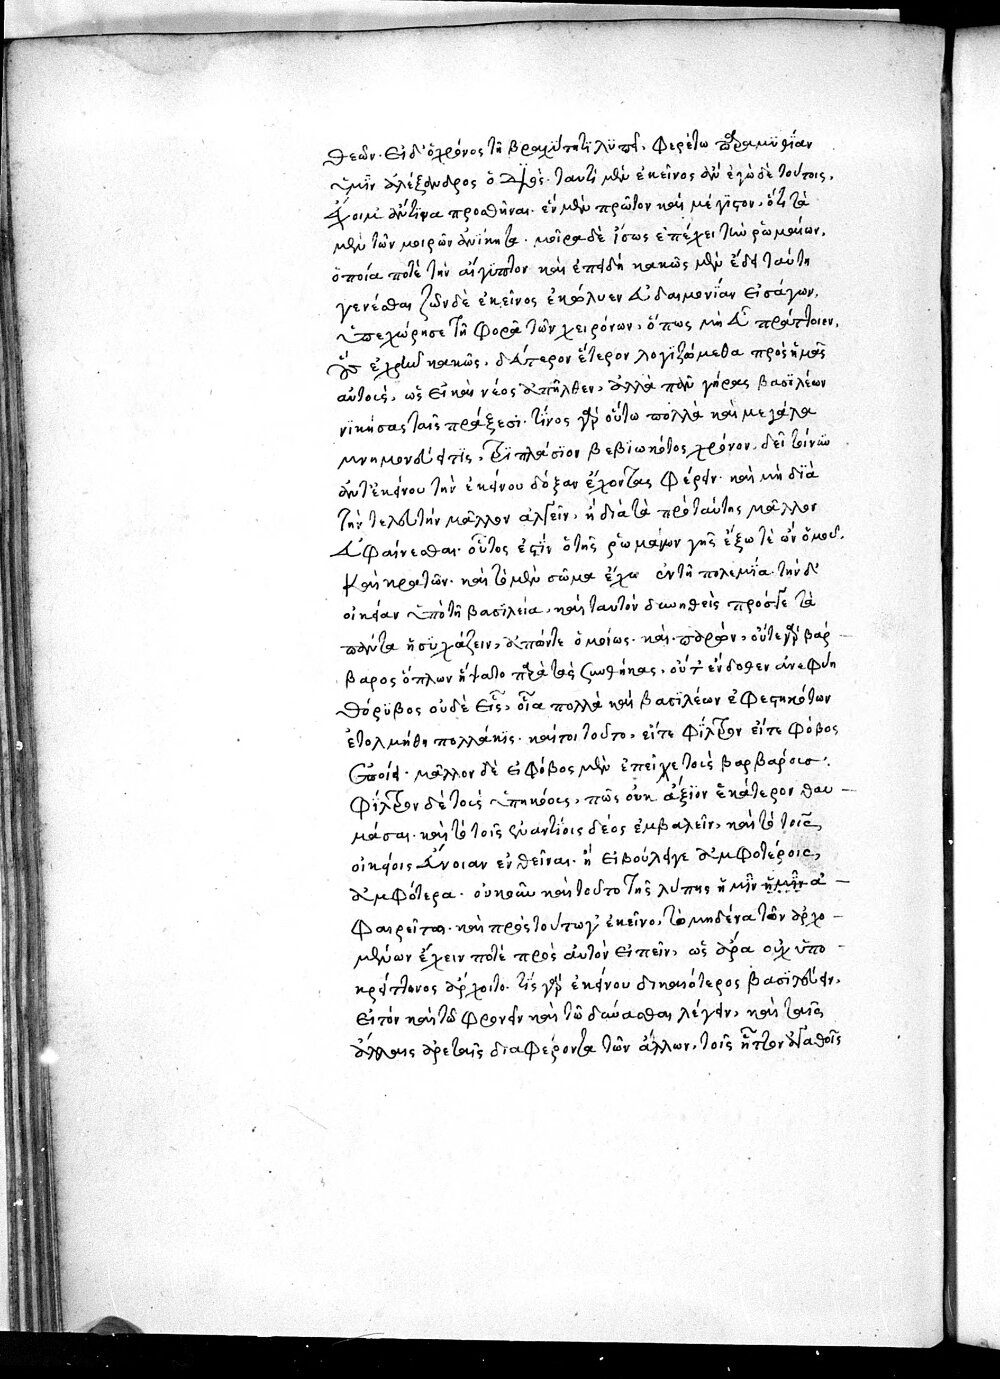 θεῶν. εἰ δ' ὁ χρόνος τῆ βραχύτητι λυπεῖ, φερέτω παραμυθίαν
ὑμῖν ἀλέξανδρος ὁ ταυτὶ μὲν ἐκεῖνος ἂν ἐγὼ δὲ τούτοις,
ἔχοιμ' ἀντῖπα προσθῆναι. ἓν μὲν πρῶτον καὶ μέγιστον, ὅτι τὰ
μὲν τῶν μοιρῶν ἀνίκητα. μοῖρα δὲ ἴσως ἐπέχει τῶν ῥωμαίων,
ὁποία ποτὲ τὴν αἴγυπτον καὶ ἐπειδὴ κακῶς μὲν ἔδει ταύτη
γενέσθαι ζῶν δὲ ἐκεῖνος ἐκώλυεν εὐδαιμονίαν εἰσάγων,
ὑπεχώρησε τῆ φορᾶ τῶν χειρόνων, ὅπως μὴ εὖ πράττοιεν,
οὓς ἐχρῆν κακῶς. δεύτερον ἕτερον λογιζώμεθα πρὸς ἡμᾶς
αὐτοὺς, ὡς εἰ καὶ νέος ἀπῆλθεν, ἀλλὰ πᾶν γῆρας βασιλέων
νικήσας ταῖς πράξεσι. τίνος γὰρ οὕτω πολλὰ καὶ μεγάλα
μνημονεύει τίς, τριπλάσιον βεβιωκότος χρόνον. δεῖ τοίνυν
ἀντ' ἐκείνου τὴν ἐκείνου δόξαν ἔχοντας φέρειν. καὶ μὴ διὰ
τὴν τελευτὴν μᾶλλον ἀλγεῖν, ἢ διὰ τὰ πρὸ ταύτης μᾶλλον
εὐφραίνεσθαι. οὗτος ἐστὶν ὁ τῆς ῥωμαίων γῆς ἔξω τὲ ὢν ὁμοῦ,
καὶ κρατῶν. καὶ τὸ μὲν σῶμα ἔχων ἐν τῆ πολεμία. τὴν δ'
οἰκείαν ὑπὸ τῆ βασιλεία, καὶ ταυτὸν δυνηθεὶς πρός τε τὰ
πάντα ἡσυχάζειν, ἀπόντε ὁμοίως. καὶ παρών, οὔτε γὰρ βάρ
βαρος ὅπλων ἥψατο παρὰ τὰς συνθήκας, οὔτ' ἔνδοθεν ἀνεφύη
θόρυβος οὐδὲ εἷς, οἷα πολλὰ καὶ βασιλέων ἐφεστηκότων
ἐτολμήθη πολλάκις. καίτοι τοῦτο, εἴτε φίλτρον εἴτε φόβος
ἐποίει. μᾶλλον δὲ εἰ φόβος μὲν ἐπεῖχε τοὺς βαρβάρους.
φίλτρον δὲ τοὺς ὑπηκόους, πῶς οὐκ ἄξιον ἑκάτερον θαυ
μάσαι. καὶ τὸ τοῖς ἐναντίοις δέος ἐμβαλεῖν, καὶ τὸ τοῖς
οἰκείοις εὔνοιαν ἐνθεῖναι. ἢ εἰ βούλει γε ἀμφοτέροις,
ἀμφότερα. οὐκοῦν καὶ τοῦτο τῆς λύπης ἡμῖν ἡμῖν ἀ
φαιρεῖται. καὶ πρὸς τούτω γ' ἐκεῖνο, τὸ μηδένα τῶν ἀρχο
μένων ἔχειν ποτὲ πρὸς αὐτὸν εἰπεῖν, ὡς ἄρα οὐχ ὑπὸ
κρείττονος ἄρχοιτο. τίς γὰρ ἐκείνου δικαιότερος βασιλεύειν,
εἰ τὸν καὶ τῶ φρονεῖν καὶ τῶ δύνασθαι λέγειν, καὶ ταῖς
ἄλλαις ἀρεταῖς διαφέροντα τῶν ἄλλων, τοῖς ἧττον ἀγαθοῖς